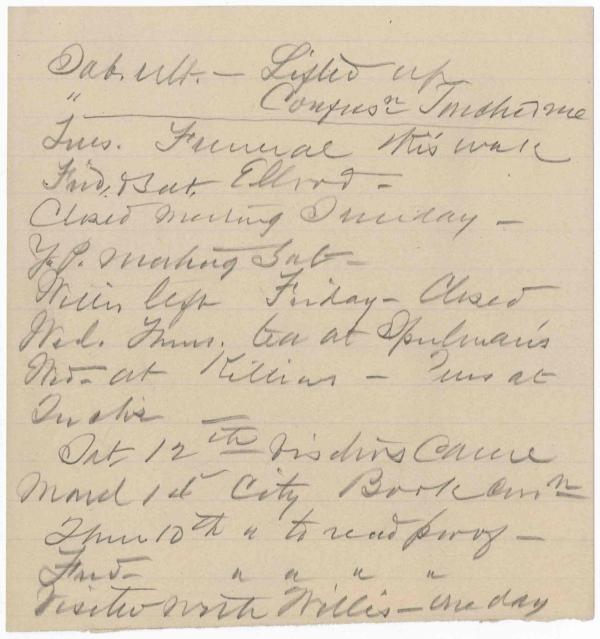 Sab. ult. — Lifted up
" Confesn Touched me
Tues. Funeral this week
Frid. & Sat. Ellwood —
Closed meeting Tuesday —
Y. P. meeting Sab —
Willis left Friday — Closed
Wed. Thurs. tea at Spulman's
Wed — at Killian — Tues at
Sat 12th Visitors Came
Mond 1st City Book Comn
Thur 10th " to read proof —
Frid — " " " "
Visited with Willis — one day